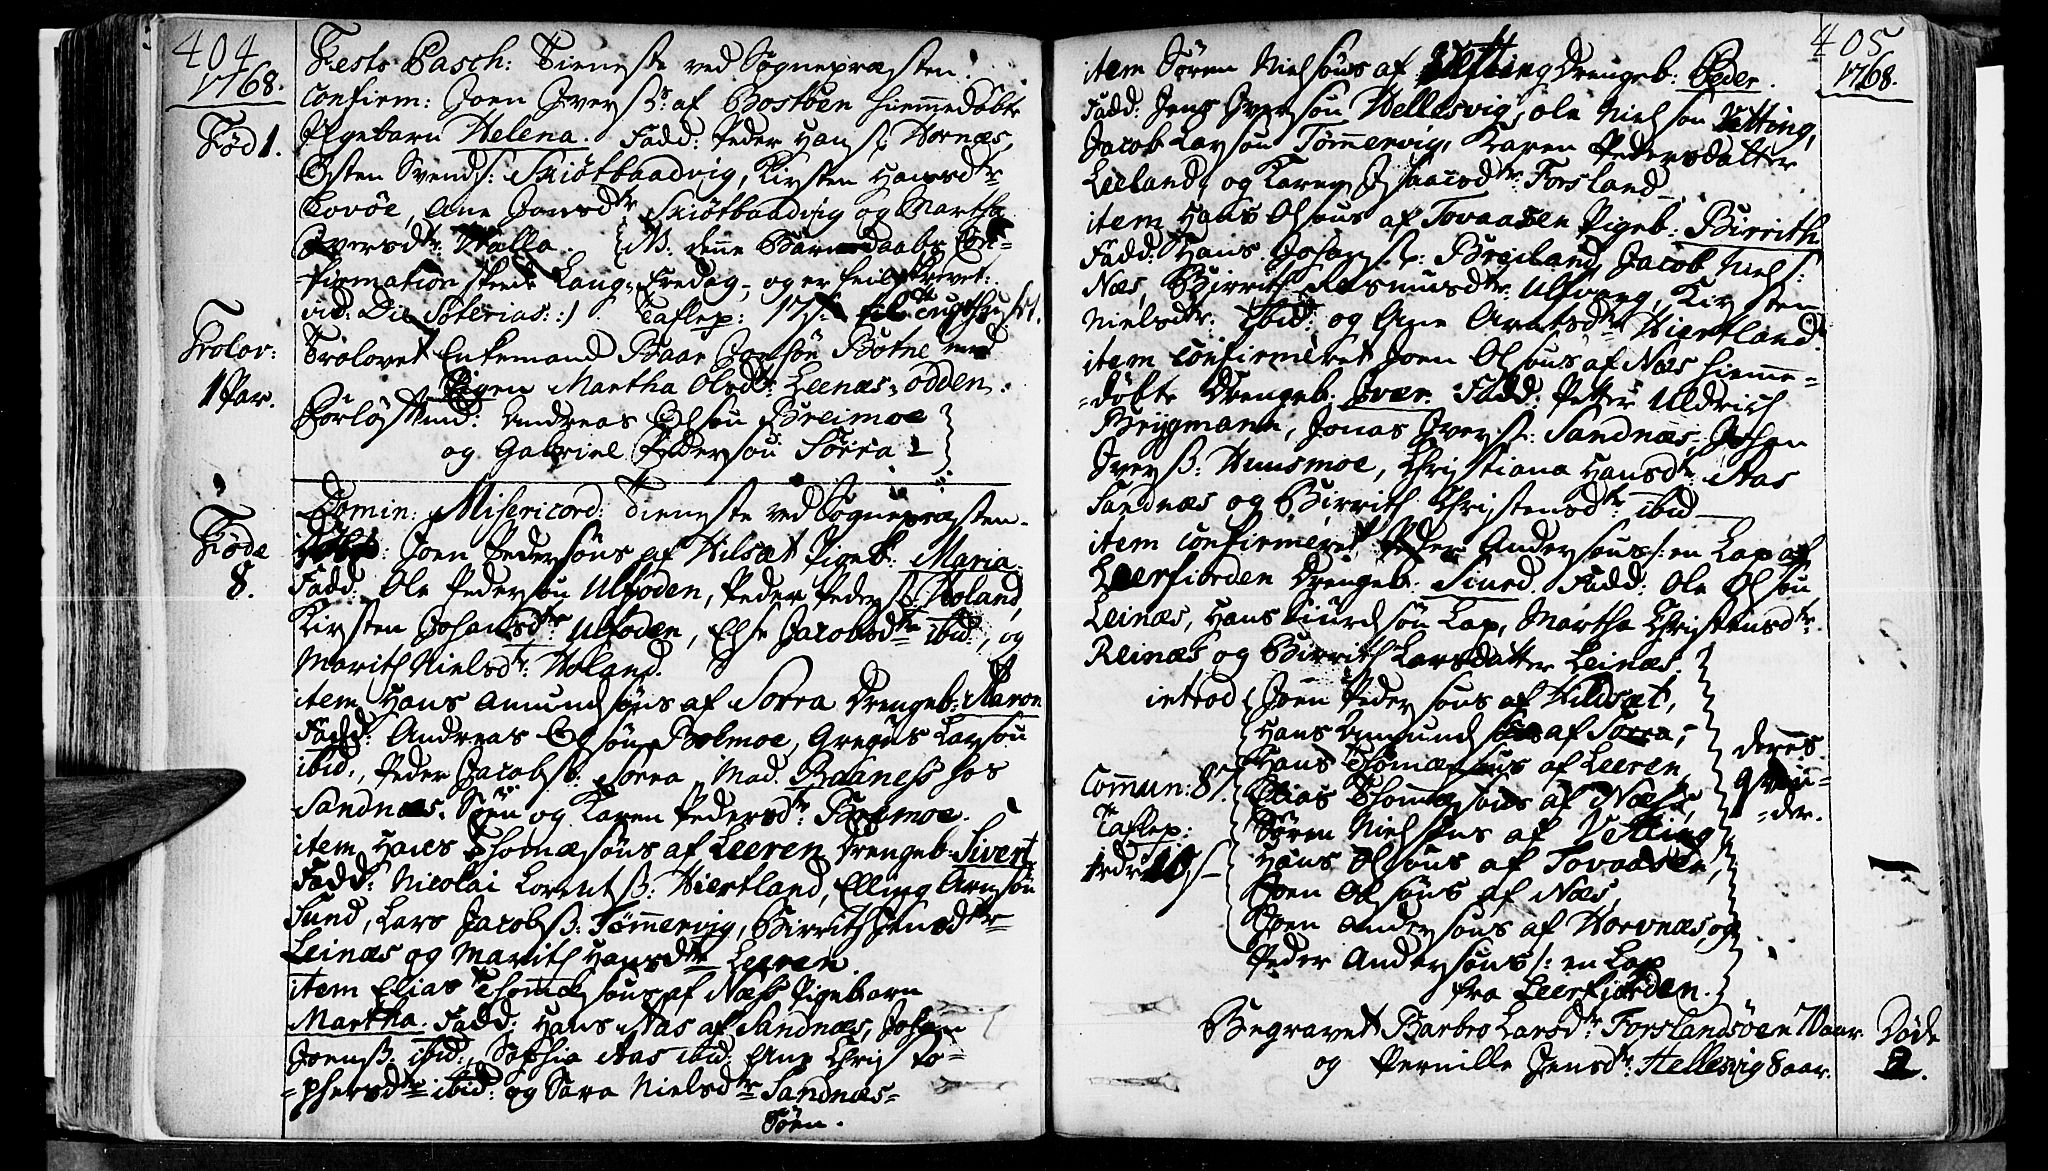 404
1768.
Fød 1.
Festo Pasch: Tieneste ved Sognepræsten.
confirm: Joen Iverss: af Bostøen hiemmedøbte
Pigebarn Helena. Fadd: Peder Hans: Hornæs,
Østen Svends: Skiøtbaadvig, Kirsten Hansdtr
Lovøe, Ane Jonsdtr Skiøtbaadvig og Martha
Iversdtr: Walla. /: NB. denne Barnedaabs Con-
-firmation skeede Lang-Fredag, og er feilskrevet:
vid: Die Soterias: :/ Taflep: 17 s. til Tugthuset.
Trolov:
1 Par.
Trolovet Enkemand Baar Jonsøn Botne med
Pigen Martha Olsdtr: Leenæs-odden.
Forløftsmænd: Andreas Olsøn Breimoe
og Gabriel Pedersøn Sørra
Fødde
8.
Domin: Misericord: Tieneste ved Sognepræsten.
Døbt: Joen Pedersøns af Hilsæt Pigeb: Maria.
Fadd: Ole Pedersøn Ulføden, Peder Peders: Holand,
Kirsten Johansdtr Ulføden, Else Jacobsdtr ibid:, og
Marith Nielsdtr: Holand.
item Hans Amundsøns af Sørra Drengeb: Aaron
Fadd: Andreas Olsøn Bolmoe, Gregus Larsøn
ibid:, Peder Jacobs: Sørra, Mad. Baaness hos
Sandnæs-Søen og Karen Pedersdtr: Breimoe.
item Hans Thomæsøns af Leeren Drengeb: Sivert
Fadd: Nicolai Lorents: Hiertland, Elling Arnsøn
Sund, Lars Jacobs: Tømmervig, Birrith Jensdtr
Leinæs og Marith Hansdtr Leeren
item Elias Thomæsøns af Næss Pigebarn
Martha. Fadd: Hans Aas af Sandnæs, Johan
Joens: ibid:, Sophia Aas ibid: Ane Christo-
-phersdtr ibid: og Sara Nielsdtr Sandnæs-
Søen.
405
1768.
item Søren Nielsøns af Vetting Drengeb: Peder.
Fadd: Jens Iversøn Hellesvig, Ole Nielsøn Vetting,
Jacob Larsøn Tømmervig, Karen Pedersdatter
Leeland, og Karen Isaacsdtr: Forsland
item Hans Olsøns af Tovaasen Pigeb: Birrith
Fadd: Hans Johans: Breiland, Jacob Niels:
Næs, Birrith Rasmusdtr: Ulfvang, Kirsten
Nielsdtr: ibid: og Ane Arntsdtr Hiertland.
item confirmeret Joen Olsøns af Næs hiemme-
-døbte Drengeb. Iver. Fadd: Petter Uldrich
Bryggmann, Jonas Ivers: Sandnæs, Johan
Iverss: Huusmoe, Christiana Hansdtr Aas
Sandnæs og Birrith Christensdtr ibid
item confirmeret Peder Andersøns /: en Lap af
Leerfiorden Drengeb. Siurd. Fadd: Ole Olsøn
Leinæs, Hans Siurdsøn Lap, Martha Christensdtr
Reinæs og Birrith Larsdatter Leinæs.
introd: Joen Pedersøns af Hildsæt,
Hans Amundsøns af Sørra,
Hans Thomæsøns af Leeren
Elias Thomæsøns af Næss,
Søren Nielsøns af Vetting
Hans Olsøns af Tovaasen,
Joen Olsøns af Næs,
Joen Andersøns af Horvnæs, og
Peder Andersøns /: en Lap
fra Leerfiorden.
deres
Qvin-
-der.
Commun: 87.
Taflep:
10 s
Begravet Barbro Larsdtr Forslandsøen 70 aar.
og Pernille Jensdtr: Hellesvig 8 aar.
Døde
2.